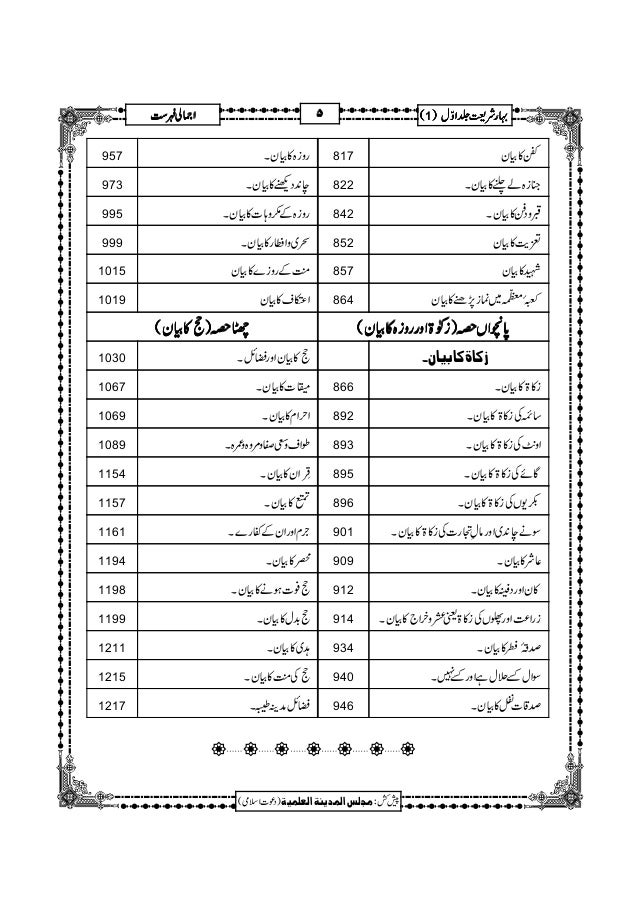 بہارِ شریعت جلد اوّل (1)
۵
اجمالی فہرست
کفن کا بیان 817
جنازہ لے چلنے کا بیان۔ 822
قبر و دفن کا بیان۔ 842
تعزیت کا بیان 852
شہید کا بیان 857
کعبۂ معظّمہ میں نماز پڑھنے کا بیان 864
پانچواں حصہ (زکوٰۃ اور روزہ کا بیان)
زکاۃ کا بیان۔
زکاۃ کا بیان۔ 866
سائمہ کی زکاۃ کا بیان۔ 892
اونٹ کی زکاۃ کا بیان۔ 893
گائے کی زکاۃ کا بیان۔ 895
بکریوں کی زکاۃ کا بیان۔ 896
سونے چاندی اور مالِ تجارت کی زکاۃ کا بیان۔ 901
عاشر کا بیان۔ 909
کان اور دفینہ کا بیان۔ 912
زراعت اور پھلوں کی زکاۃ یعنی عشر و خراج کا بیان۔ 914
صدقۂ فطر کا بیان۔ 934
سوال کسے حلال ہے اور کسے نہیں۔ 940
صدقات نفل کا بیان۔ 946
روزہ کا بیان۔ 957
چاند دیکھنے کا بیان۔ 973
روزہ کے مکروہات کا بیان۔ 995
سحری و افطار کا بیان۔ 999
منت کے روزے کا بیان 1015
اعتکاف کا بیان 1019
چھٹا حصہ (حج کا بیان)
حج کا بیان اور فضائل۔ 1030
میقات کا بیان۔ 1067
احرام کا بیان۔ 1069
طواف و سعی صفا و مروہ و عمرہ۔ 1089
قِران کا بیان۔ 1154
تمتع کا بیان۔ 1157
جرم اور ان کے کفارے۔ 1161
محصر کا بیان۔ 1194
حج فوت ہونے کا بیان۔ 1198
حج بدل کا بیان۔ 1199
ہدی کا بیان۔ 1211
حج کی منت کا بیان۔ 1215
فضائل مدینہ طیبہ۔ 1217
پیش کش: مجلس المدینۃ العلمیۃ (دعوت اسلامی)